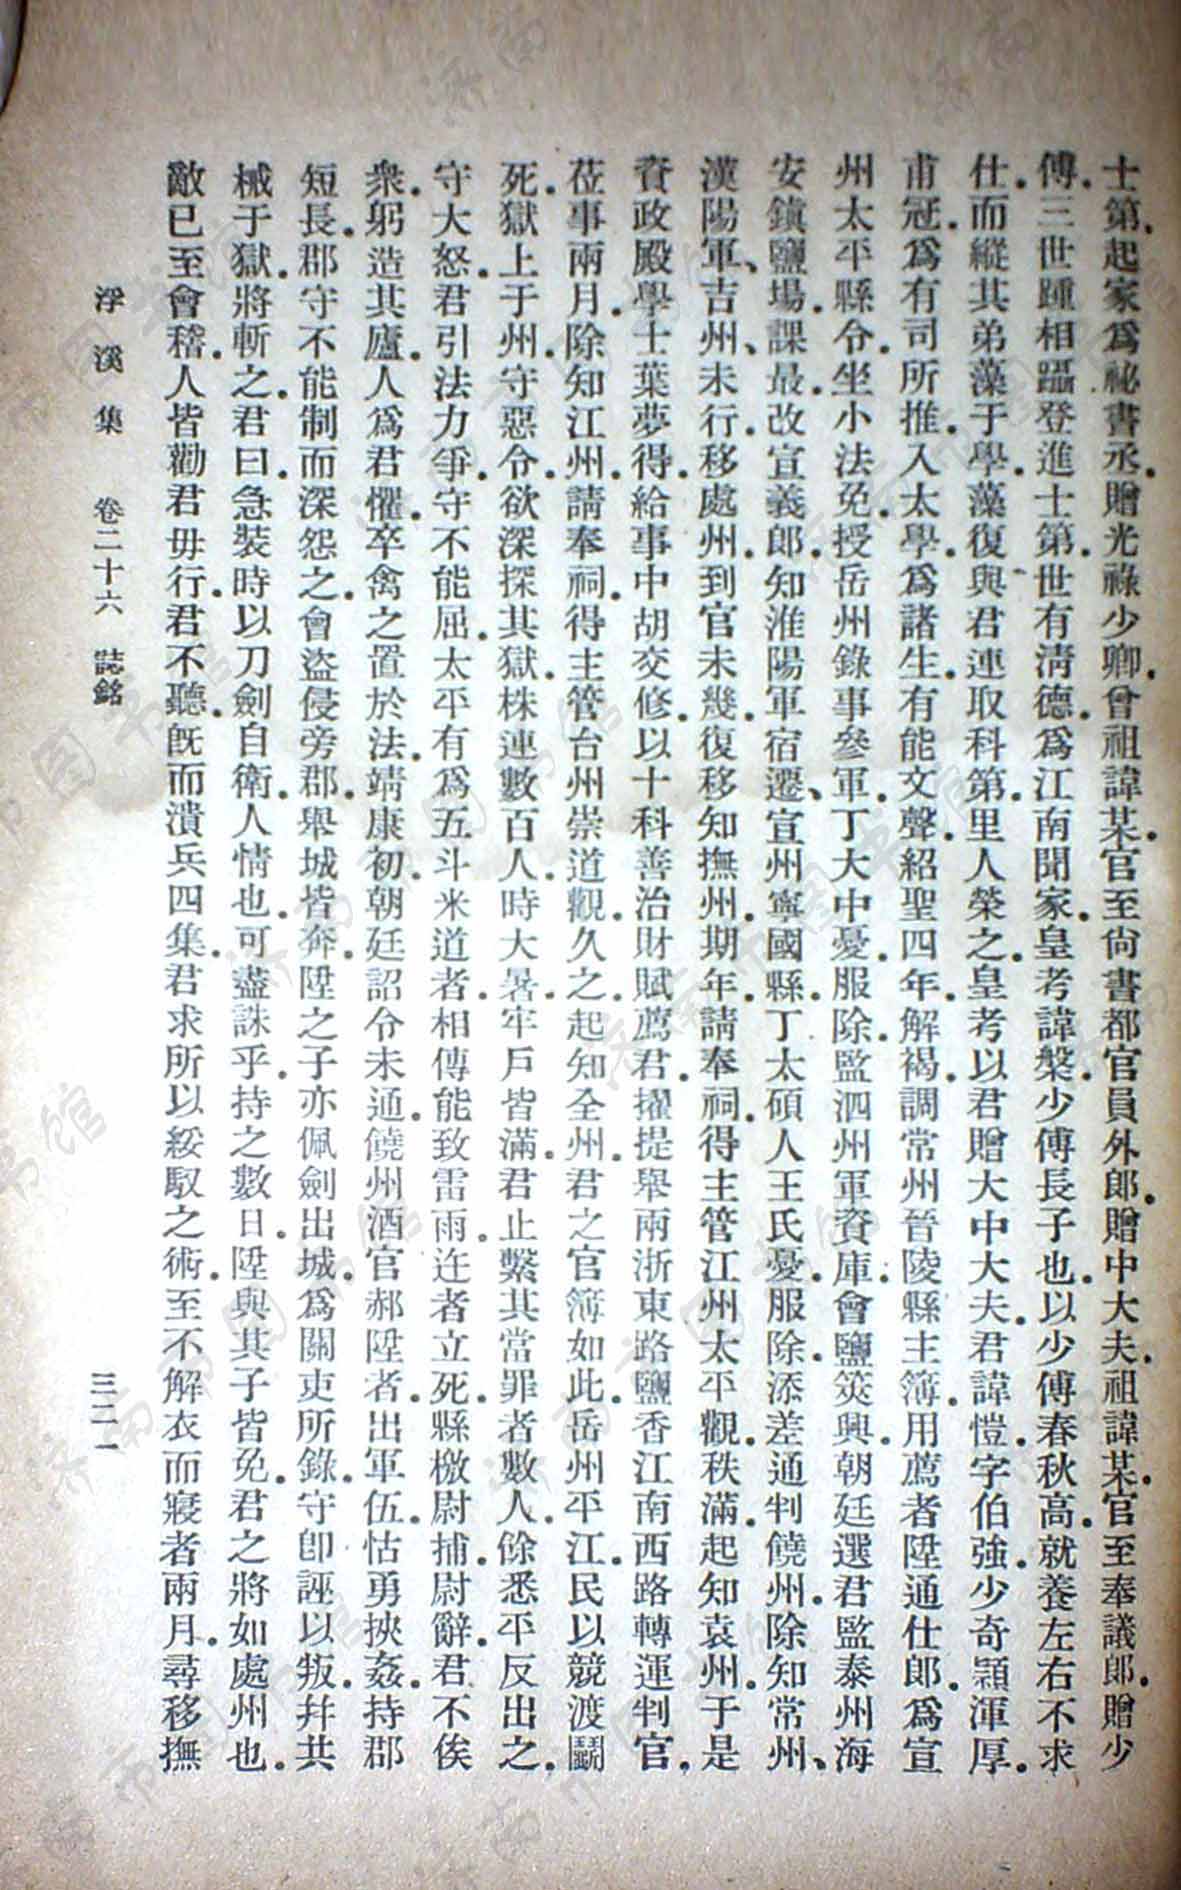 士第起家爲祕書丞贈光祿少卿曾祖諱某官至尙書都官員外郎贈中大夫祖諱某官至奉議郎贈少
傅三世踵相躡登進士第世有淸德爲江南聞家皇考諱槃少傅長子也以少傅春秋高就養左右不求
仕而縱其弟藻于學藻復與君連取科第里人榮之皇考以君贈大中大夫君諱愷字伯強少奇穎渾厚
甫冠爲有司所推入太學爲諸生有能文聲紹聖四年解褐調常州晉陵縣主簿用薦者陞通仕郎爲宣
州太平縣令坐小法免授岳州錄事參軍丁大中憂服除監泗州軍資庫會鹽筴興朝廷選君監泰州海
安鎭鹽場課最改宣義郎知淮陽軍宿遷、宣州寧國縣丁太碩人王氏憂服除添差通判饒州除知常州、
漢陽軍、吉州未行移處州到官未幾復移知撫州期年請奉祠得主管江州太平觀秩滿起知袁州于是
資政殿學士葉夢得給事中胡交修以十科善治財賦薦君擢提舉兩浙東路鹽香江南西路轉運判官
莅事兩月除知江州請奉祠得主管台州崇道觀久之起知全州君之官簿如此岳州平江民以競渡鬭
死獄上于州守惡令欲深探其獄株連數百人時大暑牢戶皆滿君止繫其當罪者數人餘悉平反出之
守大怒君引法力爭守不能屈太平有爲五斗米道者相傳能致雷雨迕者立死縣檄尉捕尉辭君不俟
衆躬造其廬人爲君懼卒禽之置於法靖康初朝廷詔令未通饒州酒官郝陞者出軍伍怙勇挾姦持郡
短長郡守不能制而深怨之會盜侵旁郡舉城皆奔陞之子亦佩劍出城爲關吏所錄守卽誣以叛幷其
械于獄將斬之君曰急裝時以刀劍自衛人情也可盡誅乎持之數日陞與其子皆免君之將如處州也
敵已至會稽人皆勸君毋行君不聽旣而潰兵四集君求所以綏馭之術至不解衣而寢者兩月尋移撫
浮溪集　卷二十六　誌銘　三二一